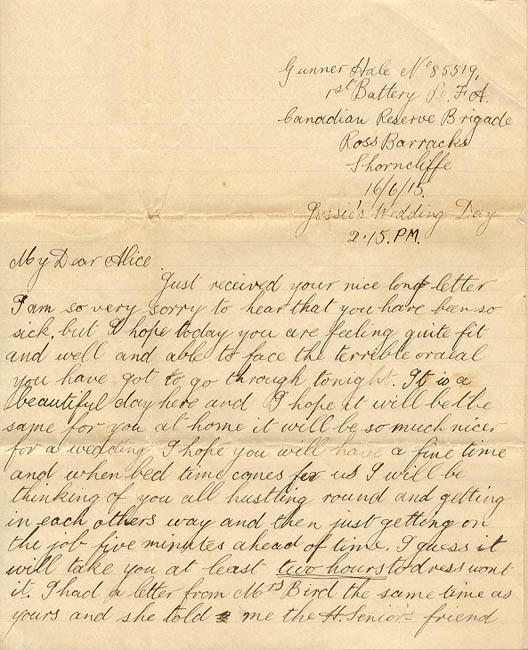 Gunner Hale No 85519,
1st Battery F.A.
Canadian Reserve Brigade
Ross Barracks
Shorncliffe
16/6/15.
Jessie's Wedding Day
2.15. P.M.
My Dear Alice
Just received your nice long letter
I am so very sorry to hear that you have been so
sick. but I hope today you are feeling quite fit
and well and able to face the terrible oraial
you have got to go through tonight. It is a
beautiful day here and I hope it will be the
same for you at home it will be so much nicer
for a wedding. I hope you will have a fine time
and when bed time comes for us I will be
thinking of you all hustling round and getting
in each others way and then just getting on
the job five minutes ahead of time. I guess it
will take you at least two hours to dress wont
it. I had a letter from Mrs Bird the same time as
yours and she told me the H. Senior's friend